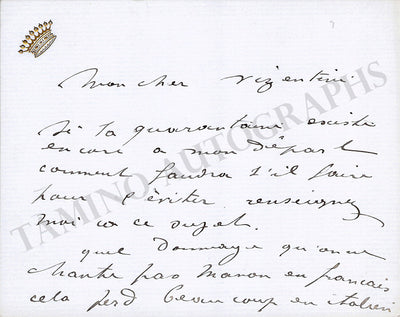 Mon cher Vizentini
Si la quarantaine existe
encore a mon départ
comment faudra t'il faire
pour l'éviter renseignez
moi à ce sujet.
quel dommage qu'on ne
chante pas Manon en français
cela perd beaucoup en italien
TAMINO AUTOGRAPHS